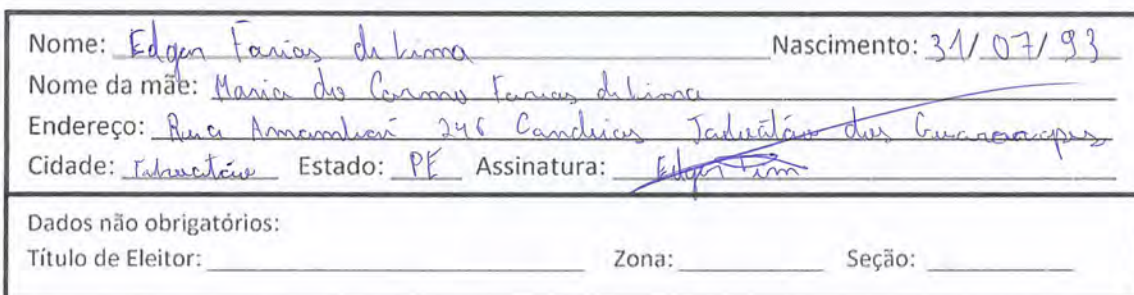 Nome: Edgar Farias de Lima Nascimento: 31/07/93
Nome da mãe: Maria do Carmo Farias de Lima
Endereço: Rua 246 Candeias Jaboatão dos Guararapes
Cidade: Jaboatão Estado: PE Assinatura: Edgar Lima
Dados não obrigatórios:
Título de Eleitor: Zona: Seção: